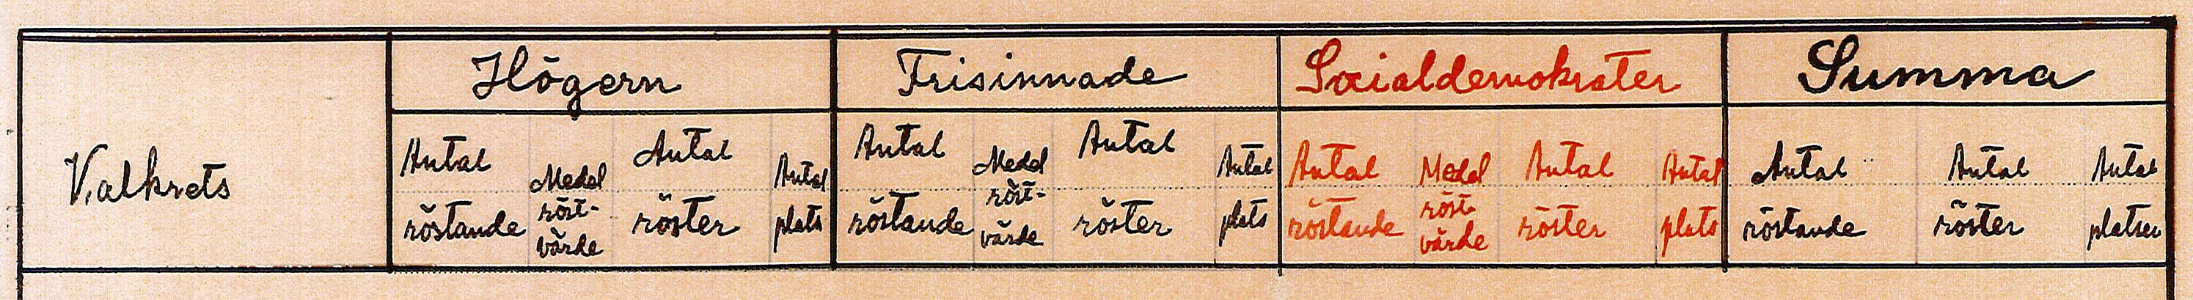 Högern Frisinnade Socialdemokrater Summa
Valkrets
Antal röstande Medel röst- värde Antal röster Antal plats
Antal röstande Medel röst- värde Antal röster Antal plats
Antal röstande Medel röst- värde Antal röster Antal plats
Antal röstande Antal röster Antal platser